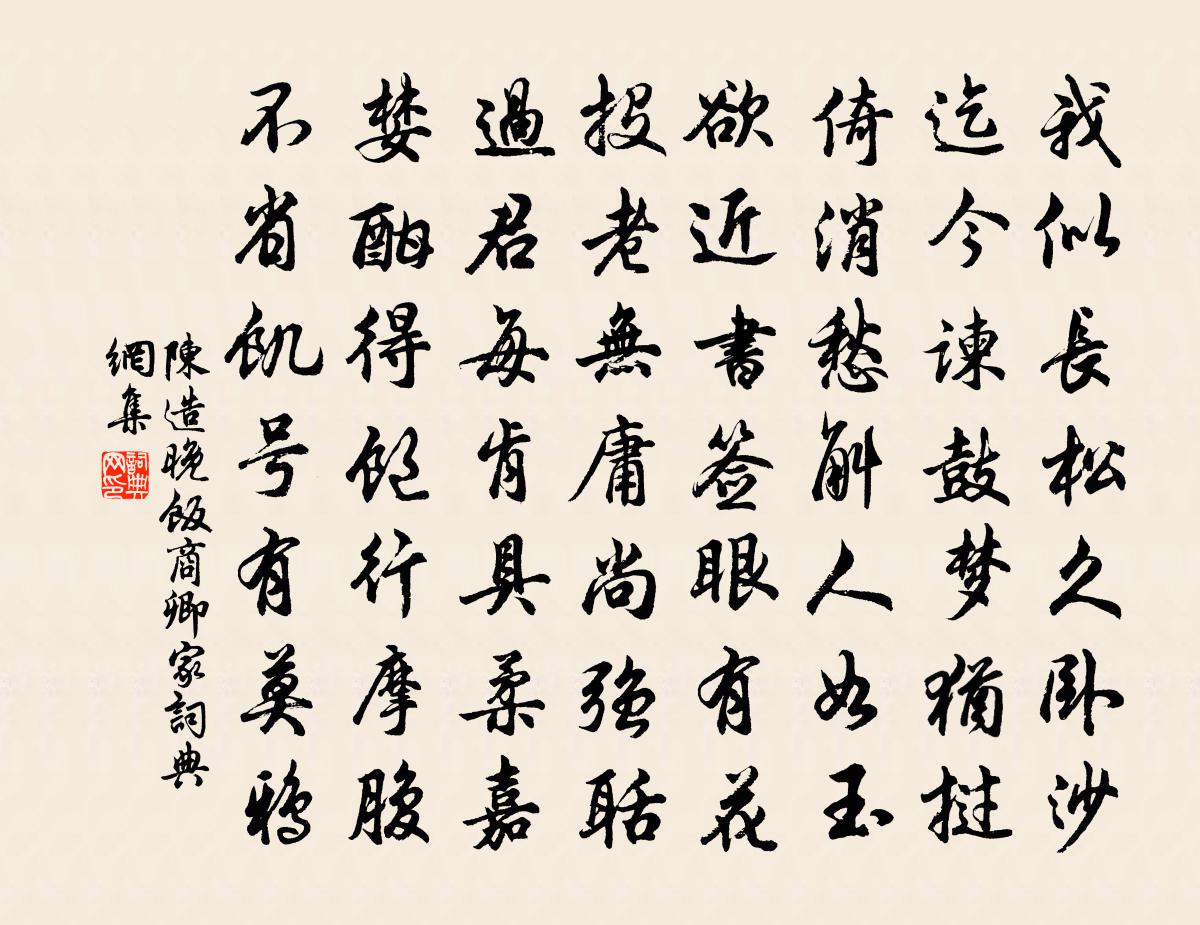 我似長松久卧沙
迄今諫鼓梦猶挝
倚消愁斛人如玉
欲近書签眼有花
投老無庸尚强聒
過君每肯具柔嘉
婪酣得飽行摩腹
不省飢号有莫鴉
陳造晚飯商卿家詞典
網集
詞典
网印